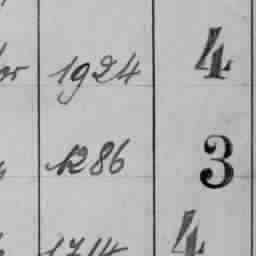 or 1924 4
1286 3
1714 4